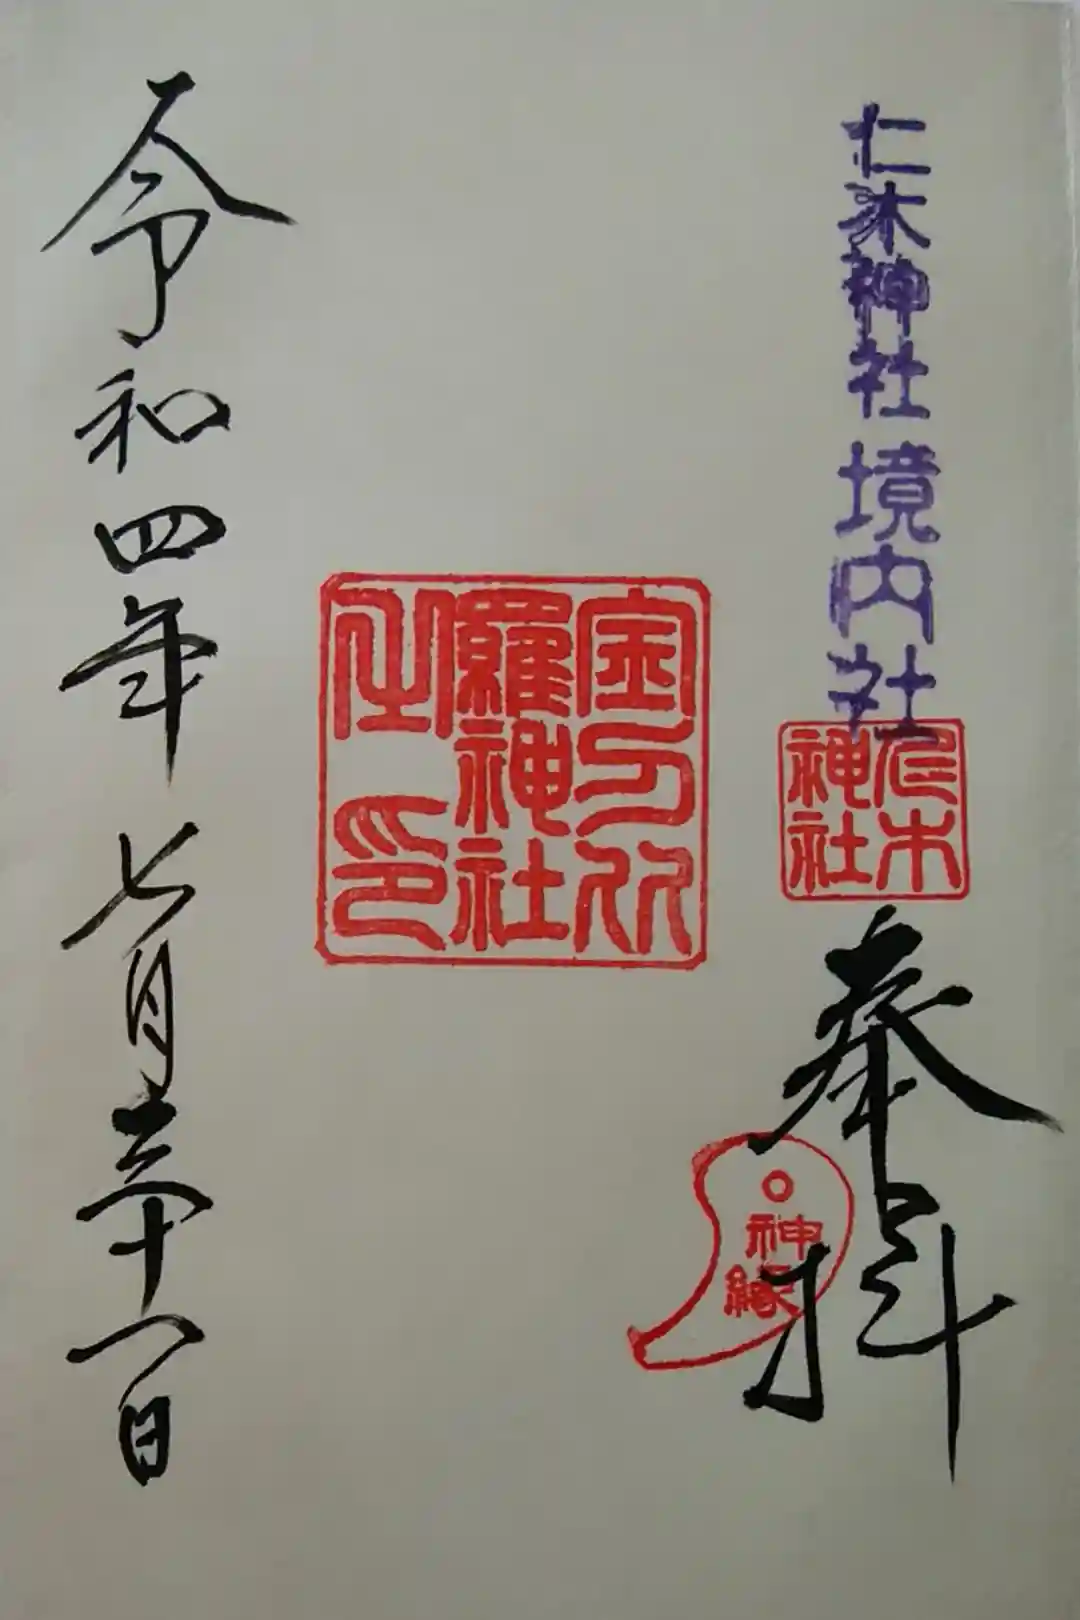 仁木神社境内社
仁木
神社
奉拝
神縁
金刀比
羅神社
之印
令和四年七月三十一日